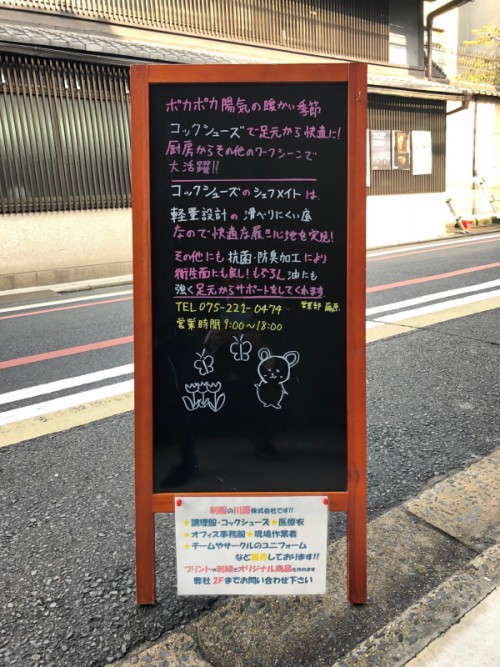 ポカポカ陽気の暖かい季節
コックシューズで足元から快適に!
厨房からその他のワークシーンで
大活躍!!
コックシューズのシェフメイトは、
軽量設計の滑べりにくい底
なので快適な履き心地を実現!
その他にも抗菌・防臭加工により
衛生面にも良し!もちろん油にも
強く足元からサポートをしてくれます
TEL 075-221-0474 営業部 藤原
営業時間 9:00~18:00
制服の川原株式会社です!!
★調理服・コックシューズ★医療衣
★オフィス事務服★現場作業着
★チームやサークルのユニフォーム
など販売しております!!
プリントや刺繍でオリジナル商品も作れます
弊社 2Fまでお問い合わせ下さい